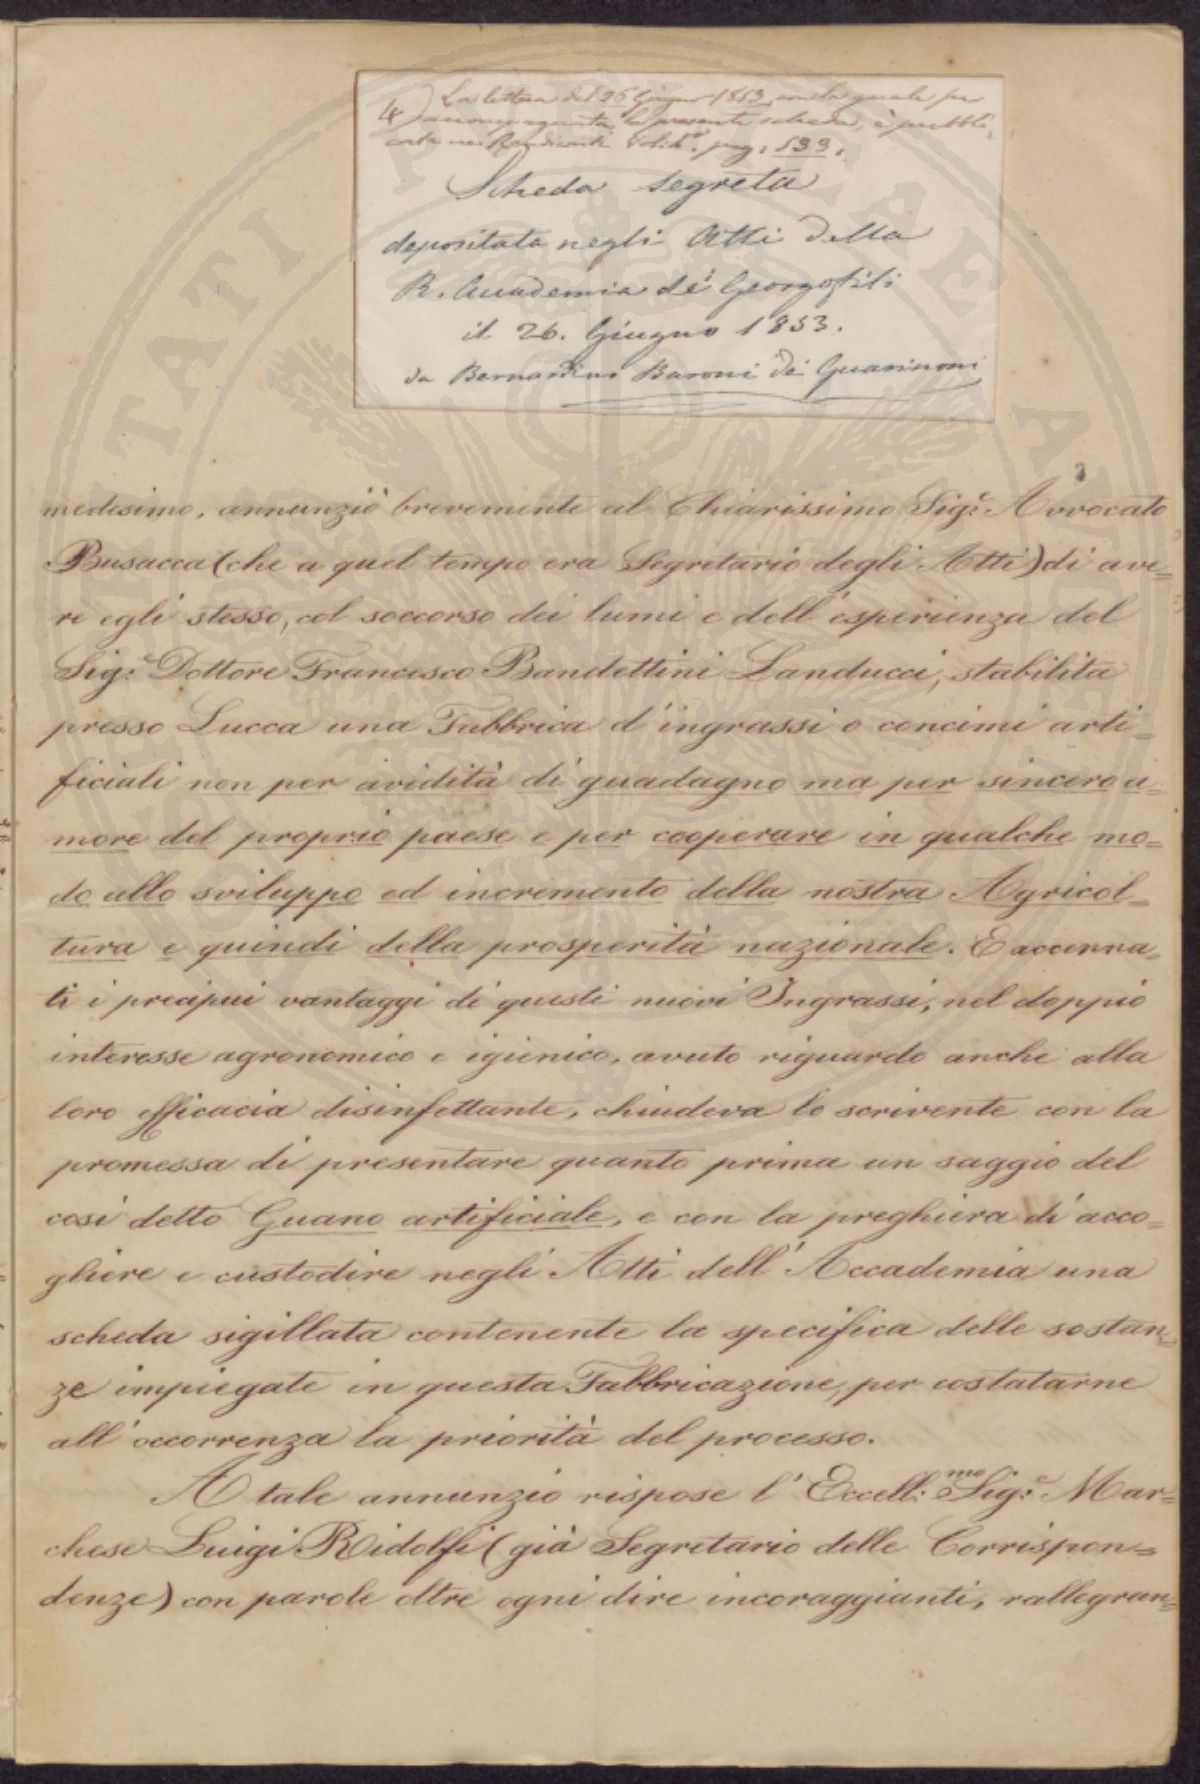 4) La lettera del 26 Giugno 1853, con la quale fu
accompagnata la presente scheda, è pubbli-
cata nei Rendiconti pag. 533.
Scheda segreta
depositata negli Atti della
R. Accademia de' Georgofili
il 26. Giugno 1853.
da Bernardino Baroni dei Guarinoni
medesimo, annunziò brevemente al Chiarissimo Sig.e Avvocato
Busacca (che a quel tempo era Segretario degli Atti) di ave=
re egli stesso, col soccorso dei lumi e dell'esperienza del
Sig.e Dottore Francesco Bandettini Landucci, stabilita
presso Lucca una Fabbrica d'ingrassi o concimi arti=
ficiali non per avidità di guadagno ma per sincero a=
more del proprio paese e per cooperare in qualche mo=
do allo sviluppo ed incremento della nostra Agricol=
tura e quindi della prosperità nazionale. E accenna=
ti i precipui vantaggi di questi nuovi Ingrassi, nel doppio
interesse agronomico e igienico, avuto riguardo anche alla
loro efficacia disinfettante, chiudeva lo scrivente con la
promessa di presentare quanto prima un saggio del
così detto Guano artificiale, e con la preghiera di acco=
gliere e custodire negli Atti dell'Accademia una
scheda sigillata contenente la specifica delle sostan=
ze impiegate in questa Fabbricazione, per costatarne
all'occorrenza la priorità del processo.
A tale annunzio rispose l'Eccell.mo Sig.e Mar=
chese Luigi Ridolfi (già Segretario delle Corrispon=
denze) con parole oltre ogni dire incoraggianti, rallegran=